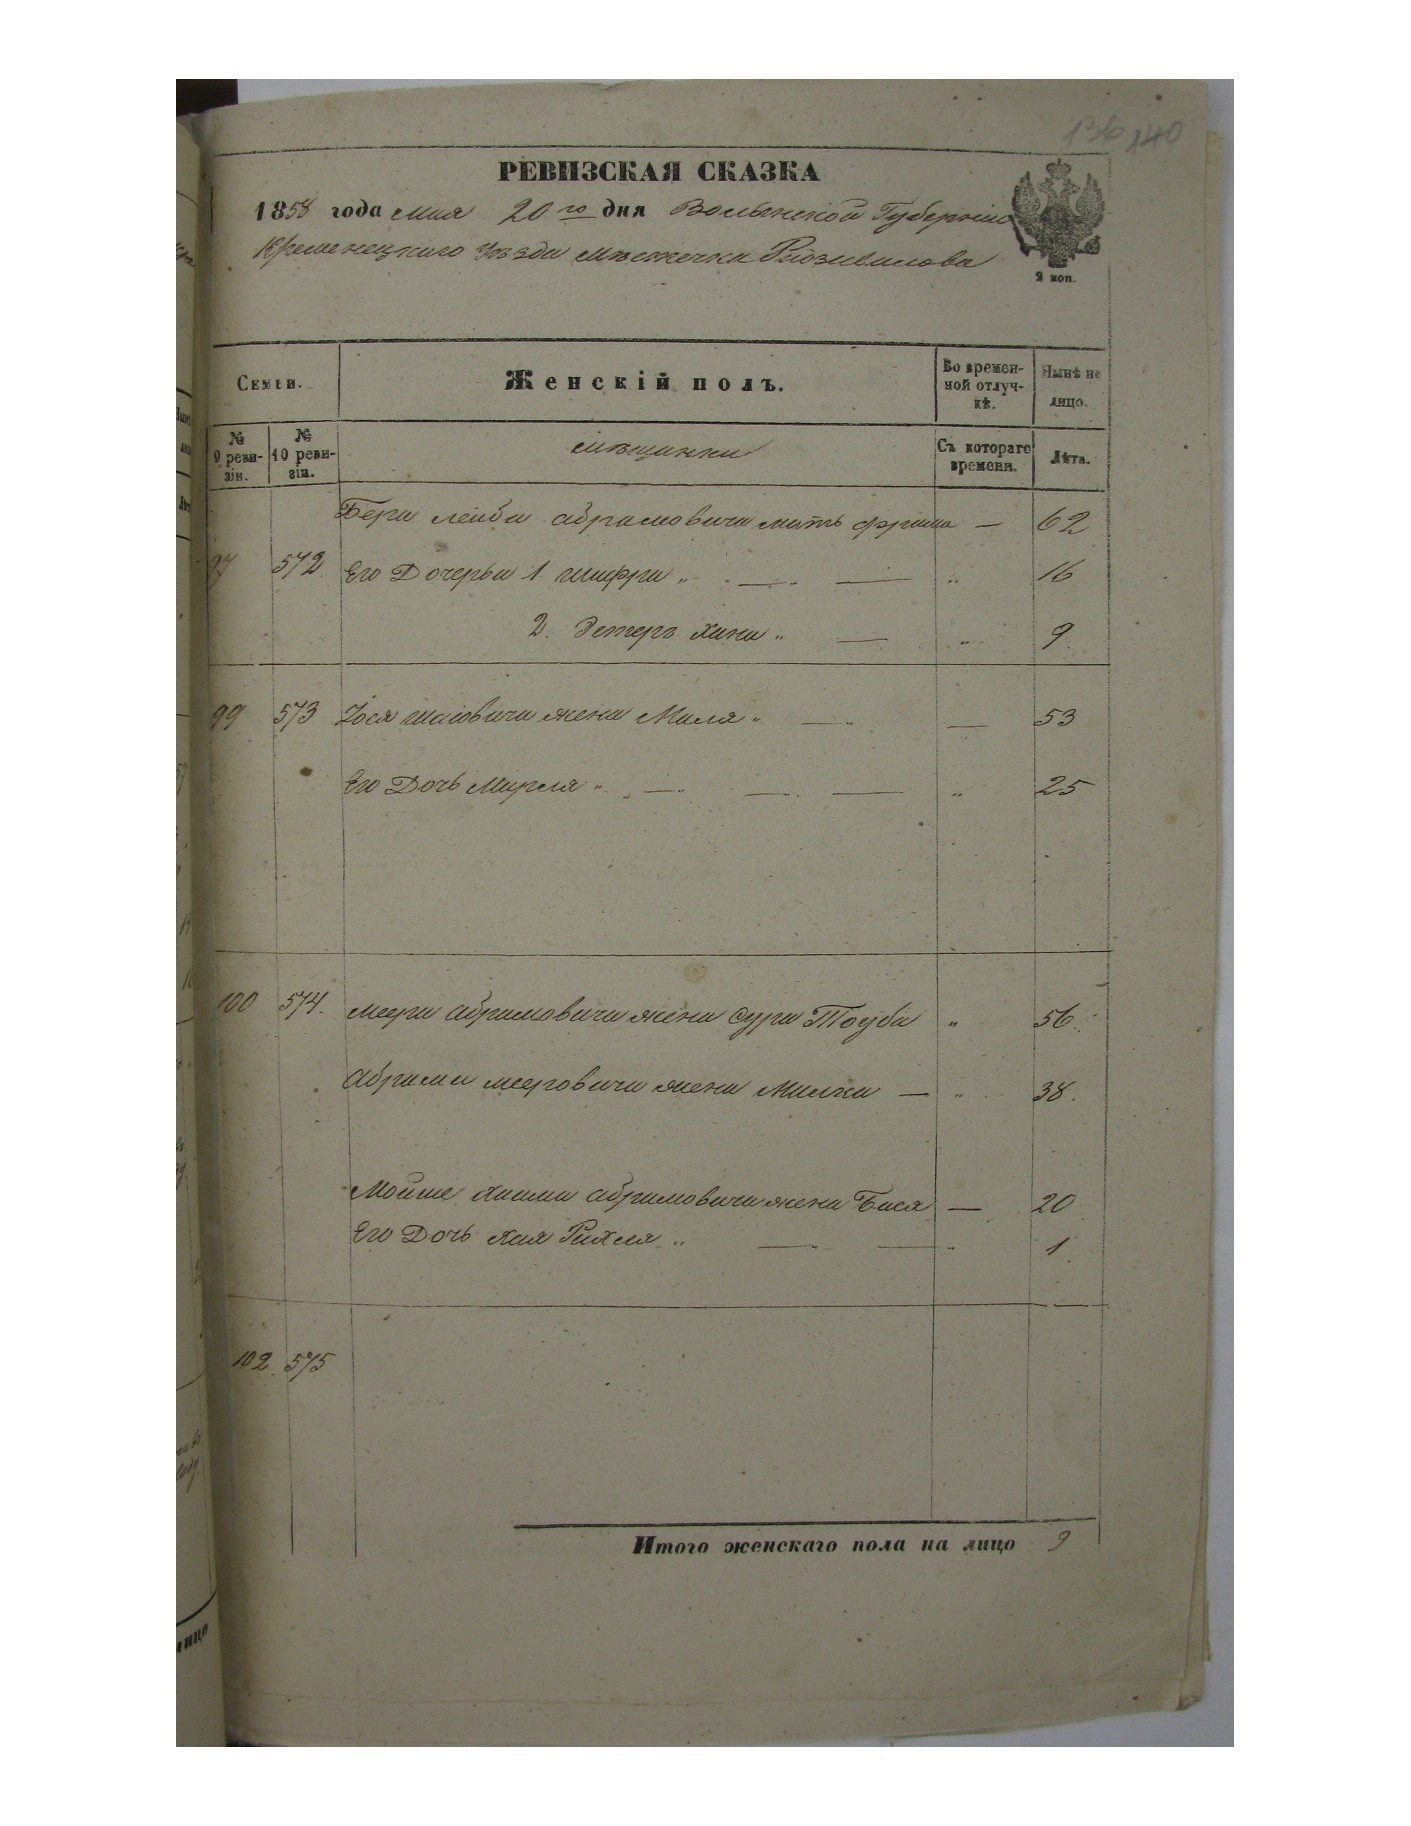 136 140
РЕВИЗСКАЯ СКАЗКА
1858 года мая 20го дня Волынской Губерніи
Кременецкаго Уѣзда мѣстечка Радзивилова
2 коп.
Семьи. Женскій полъ. Во времен-ной отлуч-кѣ. Нынѣ на лицо.
№ 9 реви-зіи. № 10 реви-зіи. мѣщанки Съ котораго времени. Лѣта.
Бера Лейба Абрамовича мать Фрима — 62
97 572 Его Дочерьи 1 Шифра " — — " 16
2. Эстеръ Хана " — " 9
99 573 Іося Шаіовича жена Маля " — " — 53
Его Дочь Мирля " — " — — " 25
100 574. Меера Абрамовича жена Сура Тоуба " 56
Абрама Мееровича жена Милка — " 38.
Мойше Хаима Абрамовича жена Бася — 20
Его Дочь Хая Рахля " — — " 1
102. 575
Итого женскаго пола на лицо 9